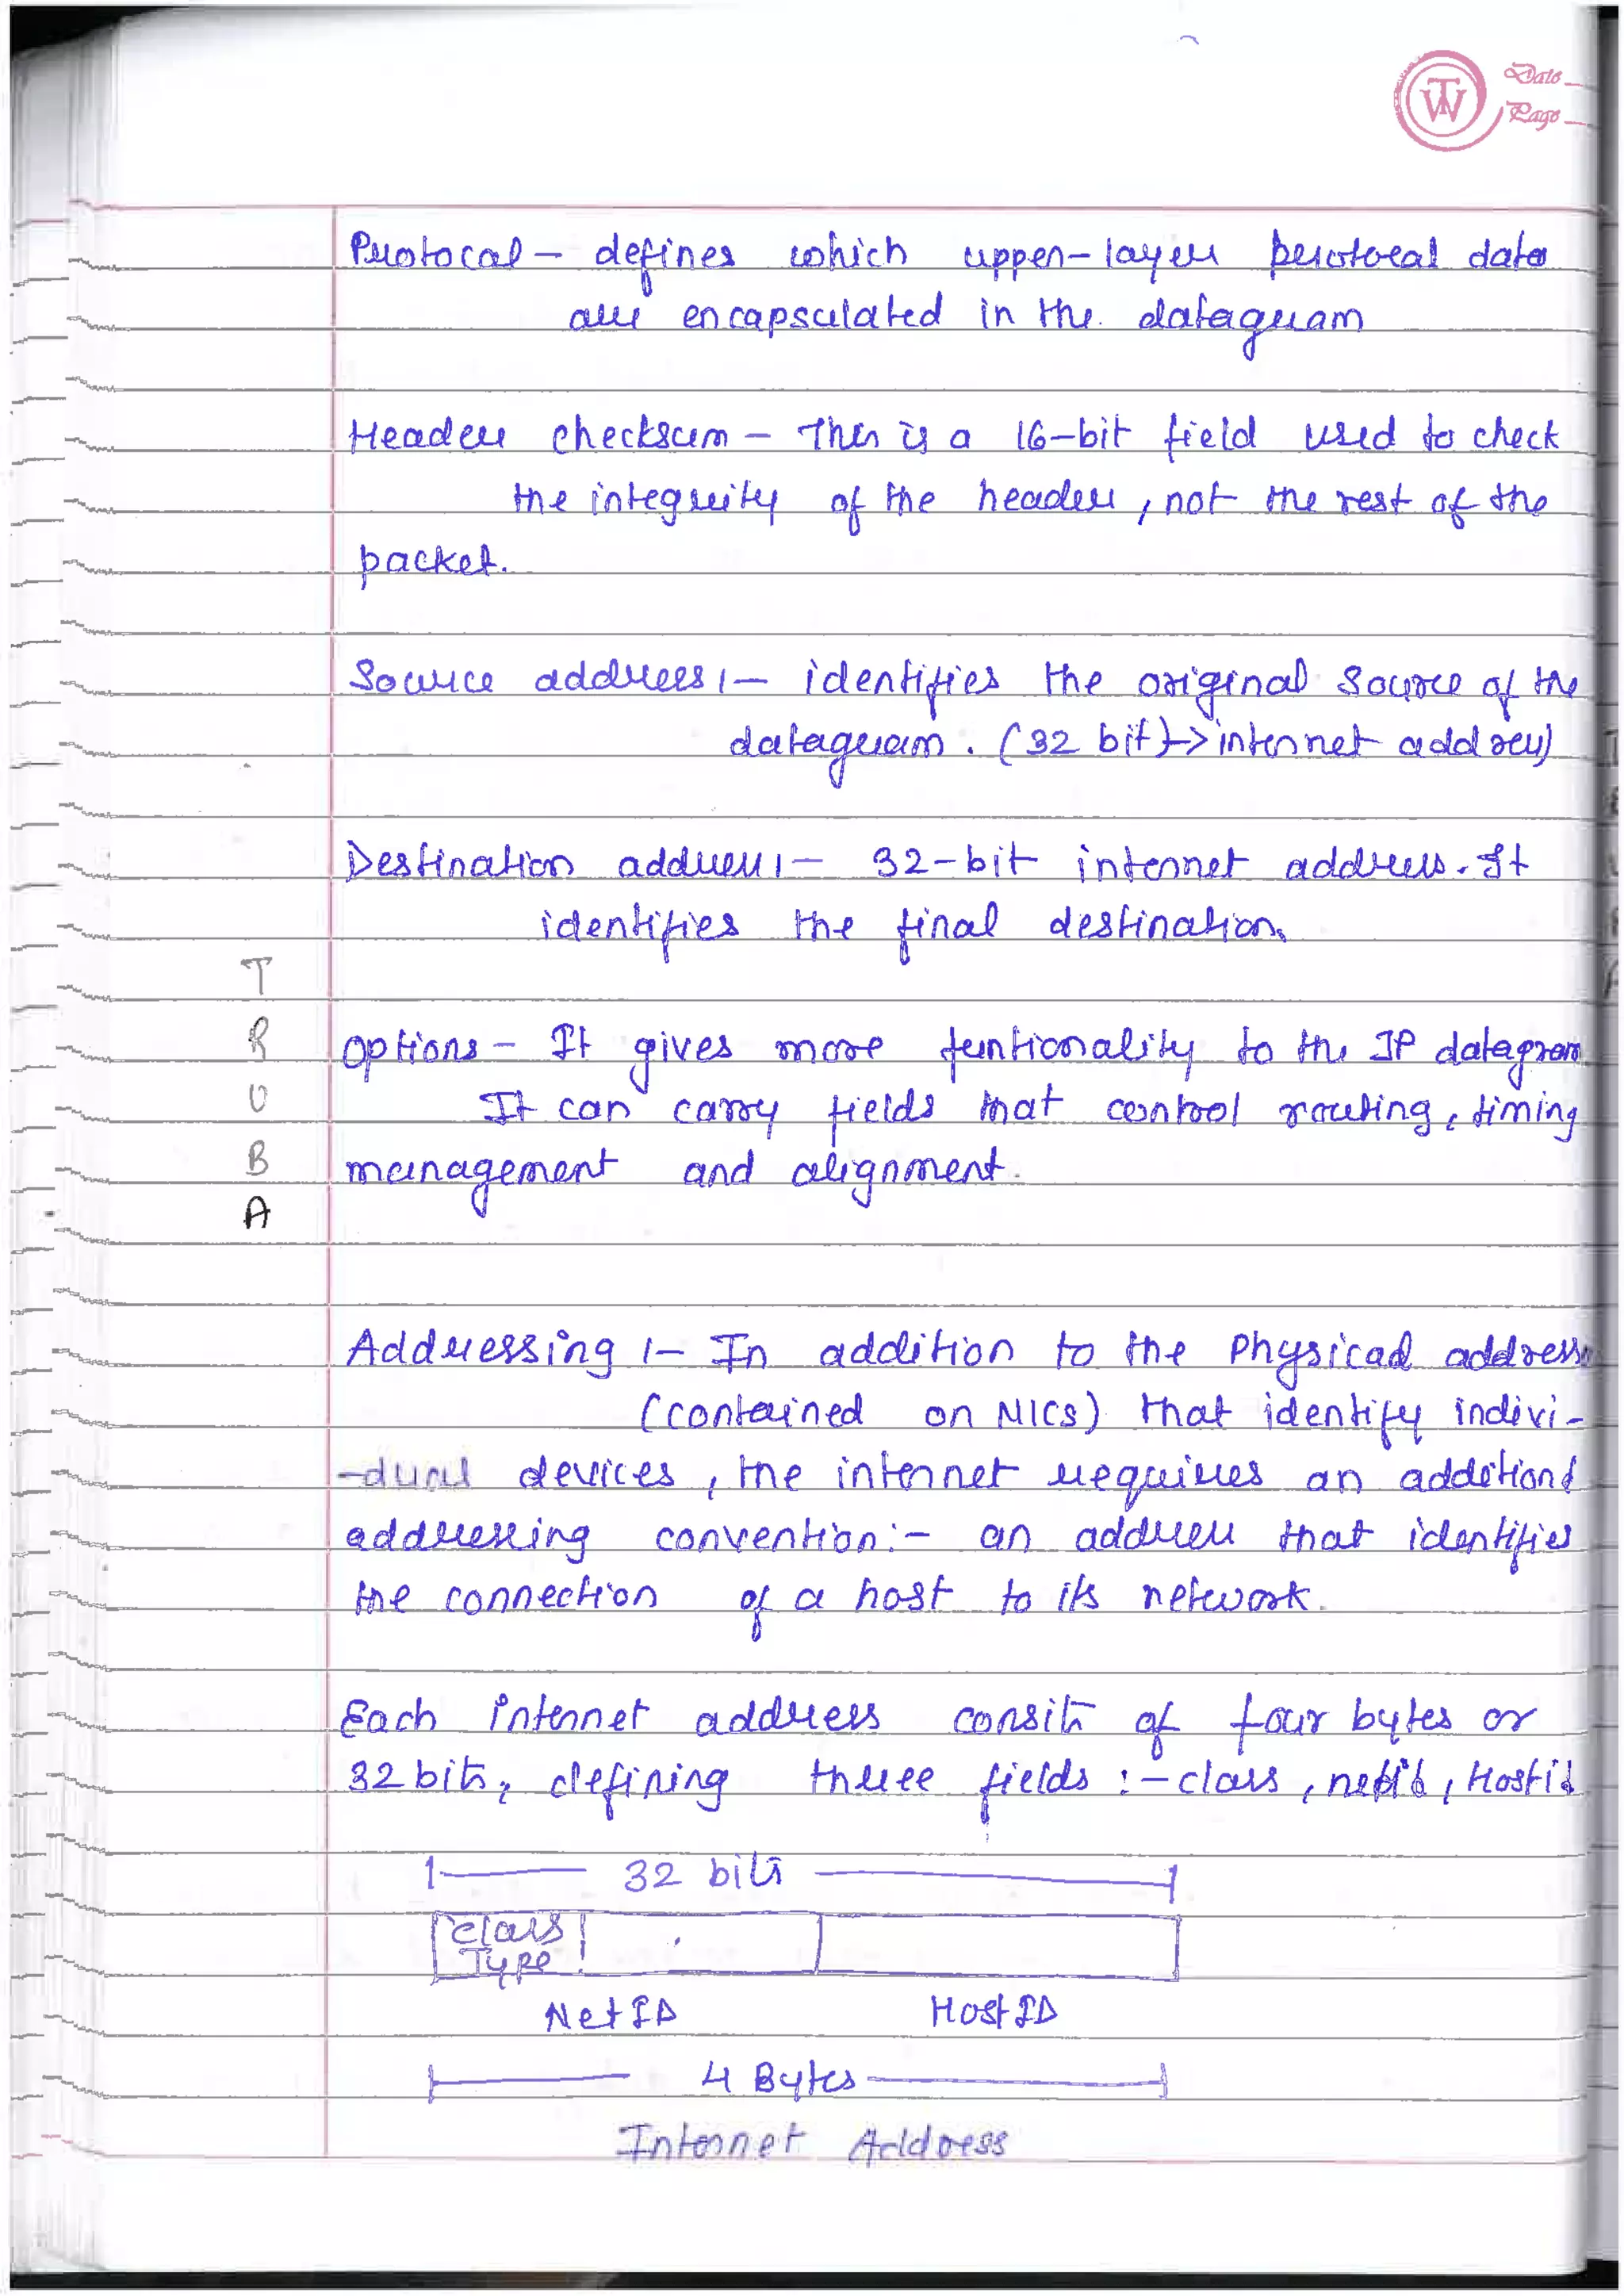 TW Date
Page
Protocal – defines which upper-layer protocal data
are encapsulated in the datagram
Header checksum – This is a 16-bit field used to check
the integrity of the header, not the rest of the
packet.
Source address :– identifies the original source of the
datagram. (32 bit)-> internet address)
Destination address :– 32-bit internet address. It
identifies the final destination.
T
R
U
B
A
options – It gives more funtionality to the IP datagram
It can carry fields that control routing, timing
management and alignment.
Addressing :– In addition to the Physical address
(contained on NICs) that identify indivi-
-dual devices, the internet requires an additional
addressing convention:– an address that identifies
the connection of a host to its network.
Each internet address consits of four bytes or
32 bits, defining three fields :– class, netid, Hostid
32 bits
class
Type
NetID HostID
4 Bytes
Internet Address